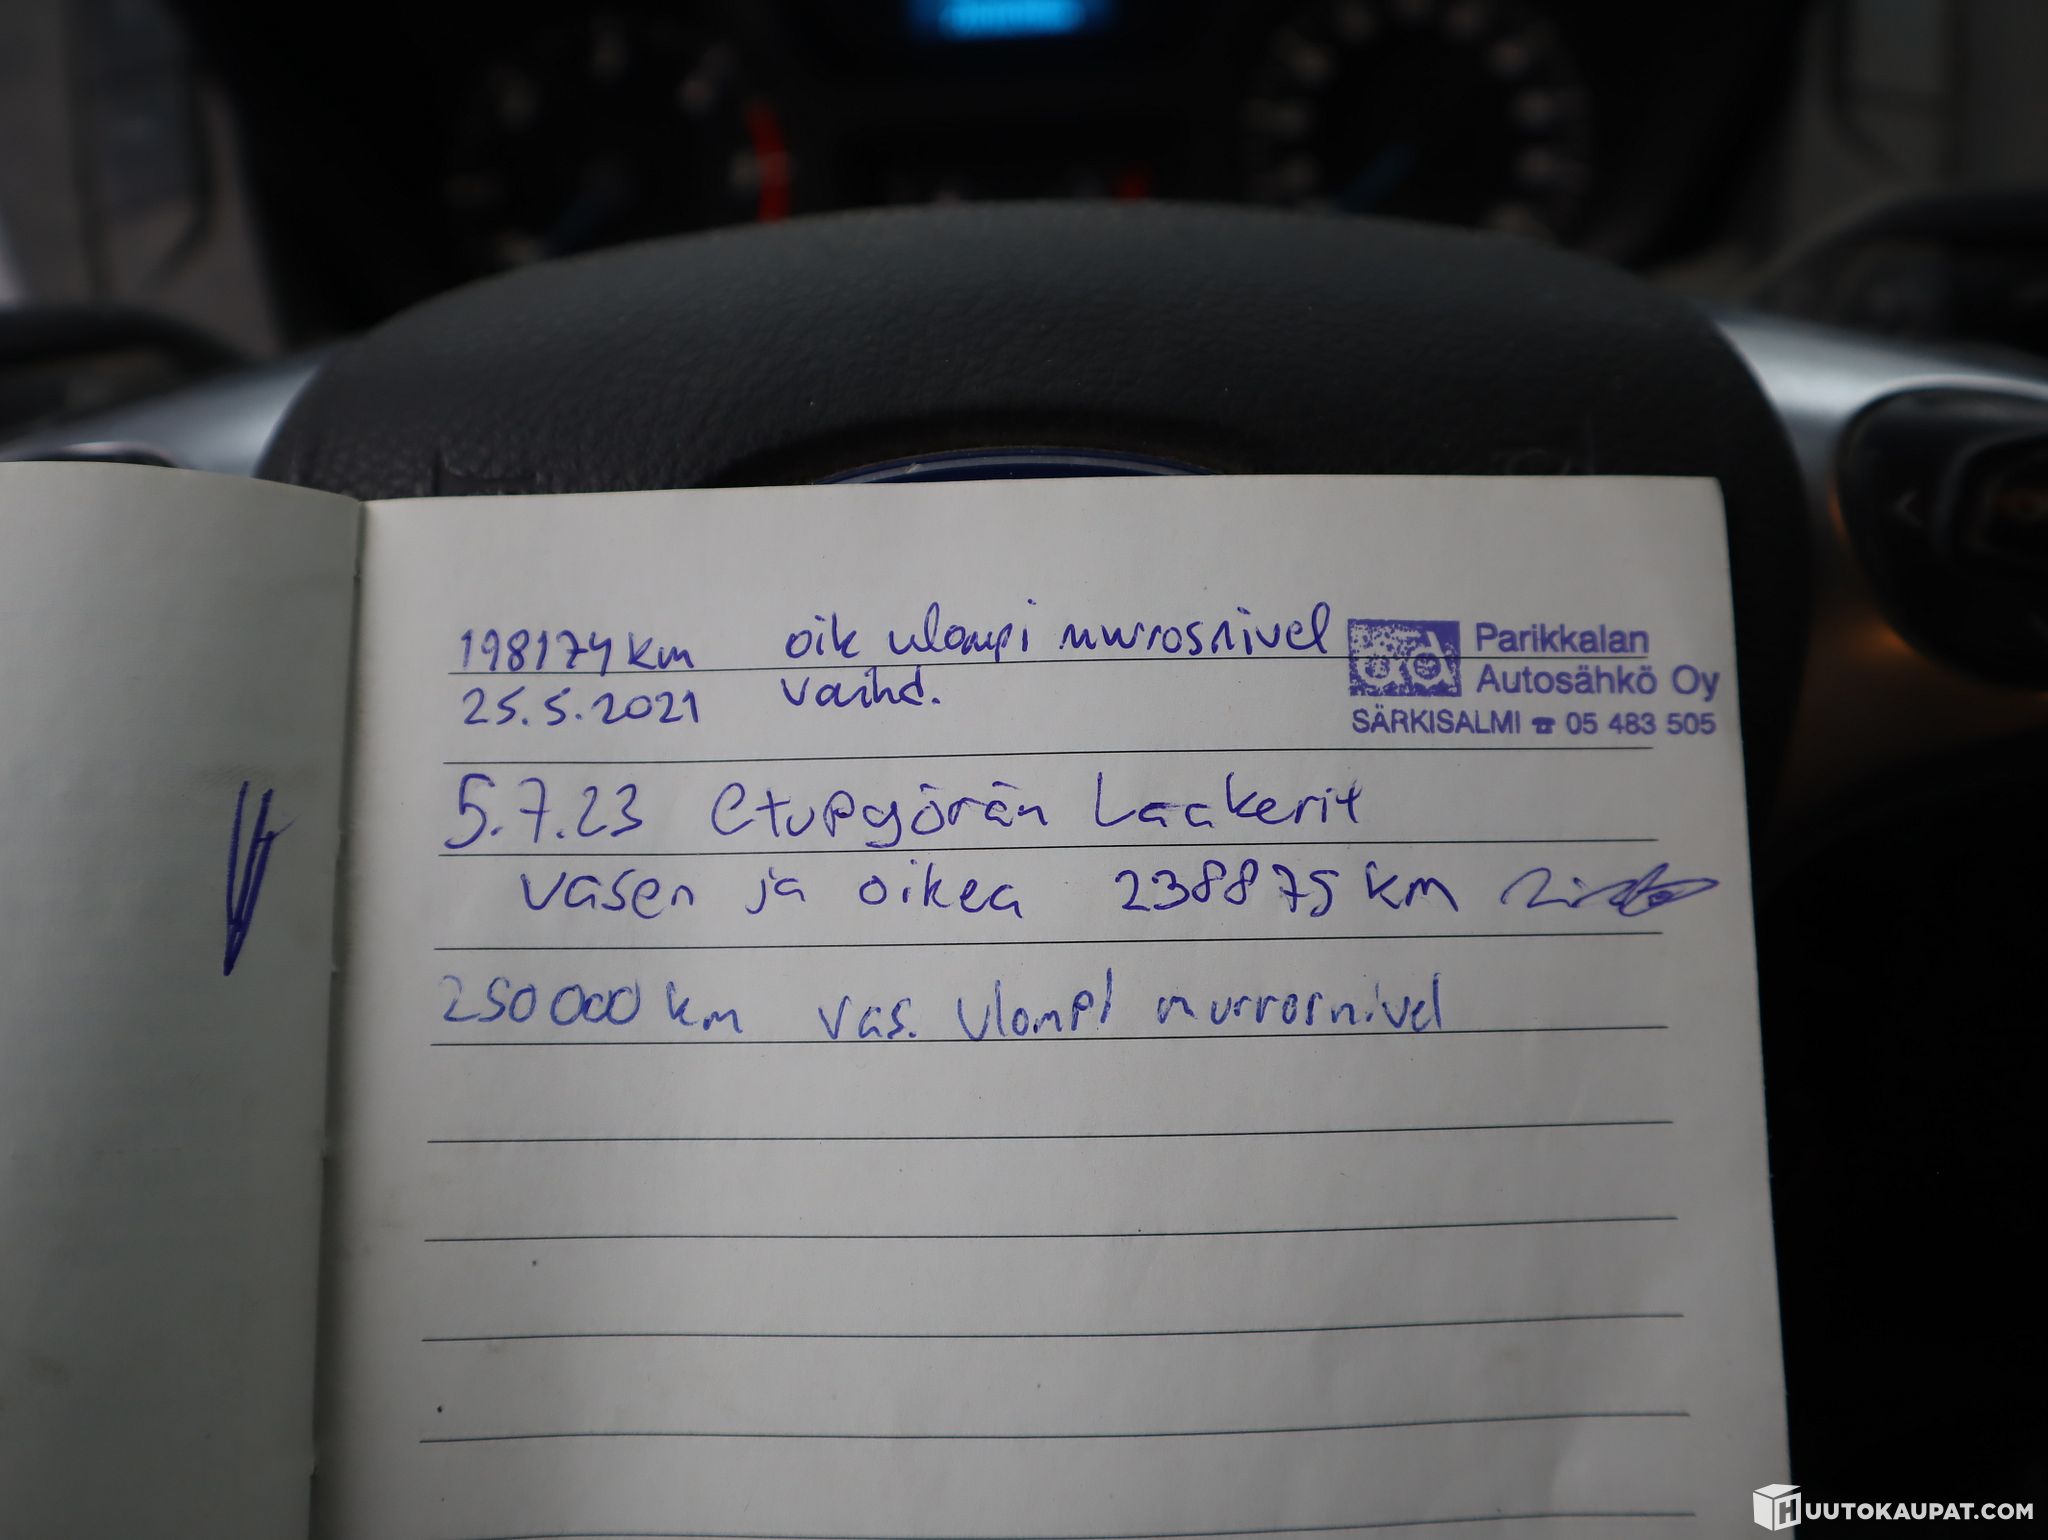 198174 km oik ulompi murrosnivel
25.5.2021 vaihd.
Parikkalan
Autosähkö Oy
SÄRKISALMI ☎ 05 483 505
5.7.23 etupyörän Laakerit
vasen ja oikea 238875 km
250000 km vas. ulompi murrosnivel
HUUTOKAUPAT.COM